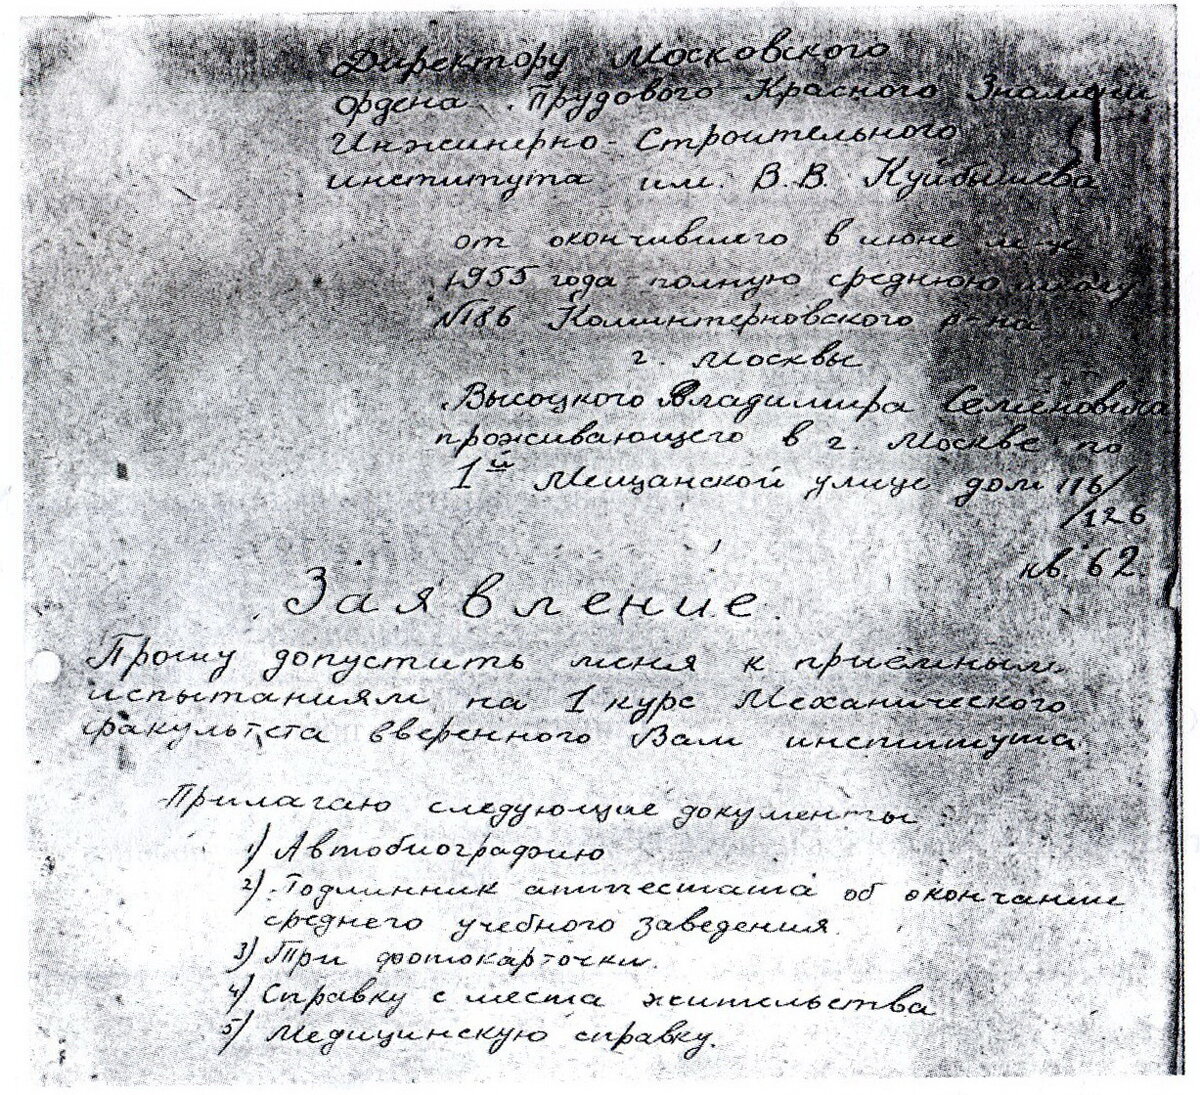 Директору Московского
ордена Трудового Красного Знамени
Инженерно-Строительного
института им. В.В. Куйбышева
от окончившего в июне м-це
1955 года полную среднюю школу
№186 Коминтерновского р-на
г. Москвы
Высоцкого Владимира Семёновича
проживающего в г. Москве по
1й Мещанской улице дом 116/
/126
кв. 62.
Заявление.
Прошу допустить меня к приёмным
испытаниям на 1 курс Механического
факультета вверенного Вам института.
Прилагаю следующие документы:
1) Автобиографию
2) Подлинник аттестата об окончании
среднего учебного заведения.
3) Три фотокарточки.
4) Справку с места жительства
5) Медицинскую справку.